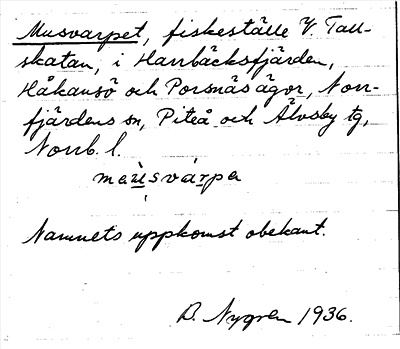 Musvarpet, fiskeställe V. Tall-
skatan, i Harrbäcksfjärden,
Håkansö och Porsnäs ägor, Norr-
fjärdens sn, Piteå och Älvsby tg,
Norrb. l.
mɐʉsvárpa
Namnets uppkomst obekant.
B. Nygren 1936.